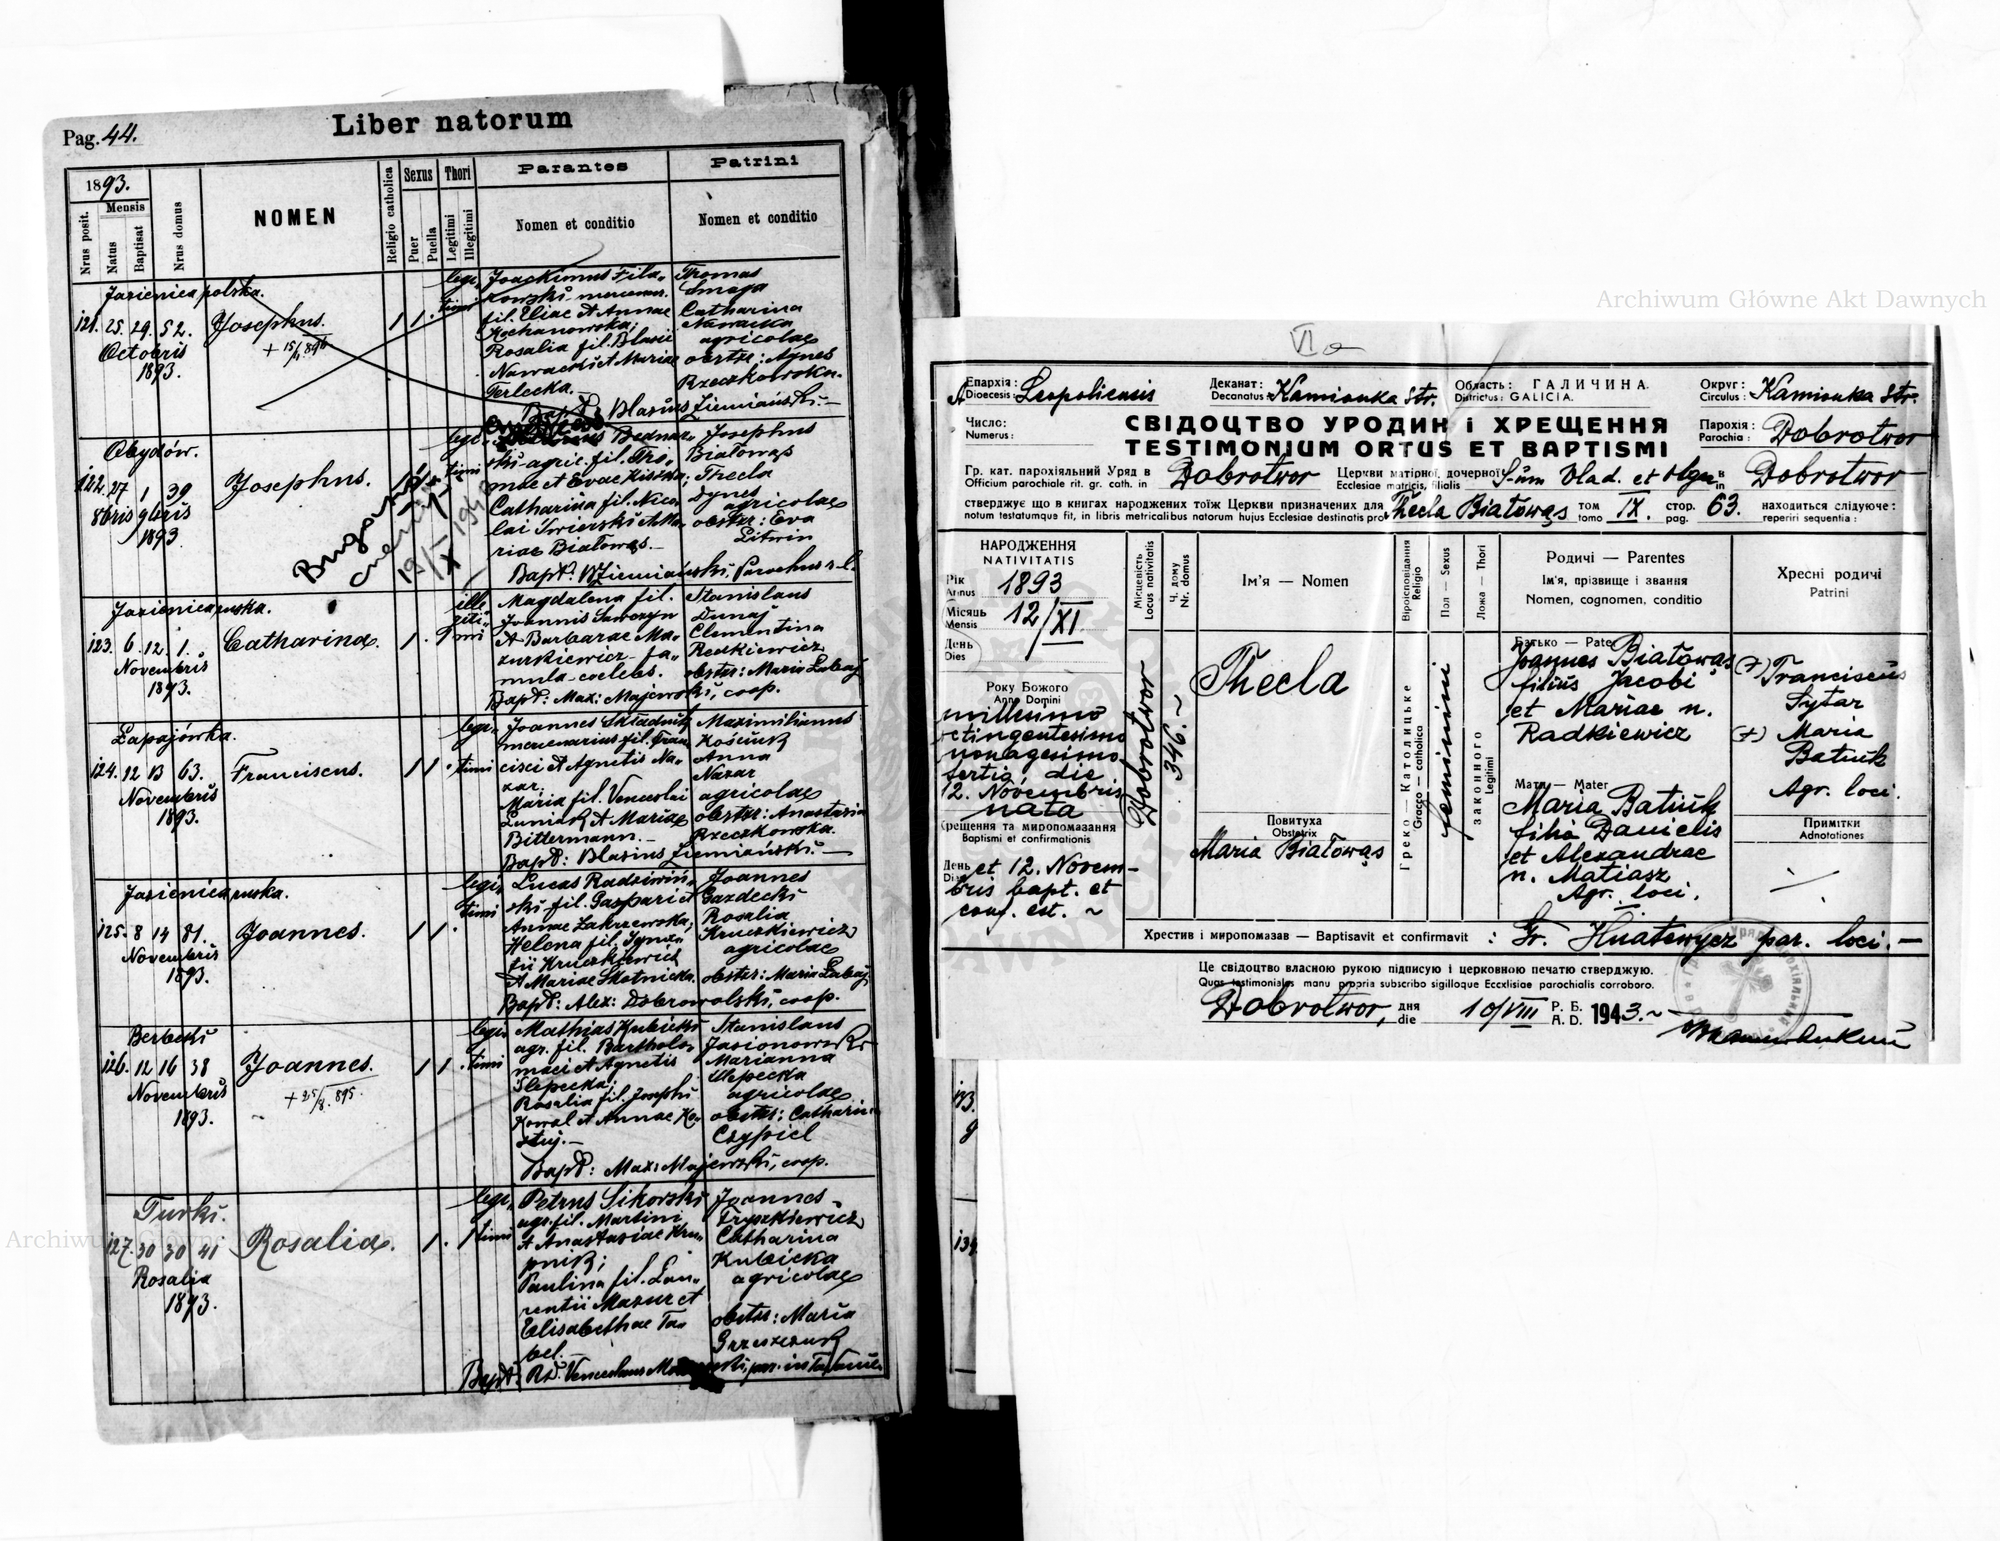 Pag. 44.
Liber natorum
1893.
Mensis
Nrus posit.
Natus
Baptisat
Nrus domus
NOMEN
Religio catholica
Sexus
Puer
Puella
Thori
Legitimi
Illegitimi
Parantes
Nomen et conditio
Patrini
Nomen et conditio
Jazienica polska.
121. 25. 29. 52.
Octobris
1893.
Josephus.
+ 15/1 896
1 1.
legi
timi
Joachimus Fila
kowski mercenar.
fil. Eliae et Annae
Kochanowska;
Rosalia fil. Blasii
Nawacki et Mariae
Terlecka.
Thomas
Smaga
Catharina
Nawacka
agricolae
obstr: Agnes
Rzeczkowska.
Blasius Ziemiański.
Obydów.
122. 27 1 39
8bris 9bris
1893
Josephus.
legi
timi
Bednar
ski agric. fil. Tho
mae et Evae Kiszka;
Catharina fil. Nico
lai Iwierski et Ma
riae Białowąs.
Josephus
Białowąs
Thecla
Dynes
agricolae
obstr: Eva
Litwin
Bapt: Bł Ziemiański, Parochus r. l.
Jazienica ruska.
123. 6. 12. 1.
Novembris
1893.
Catharina.
1.
ille
giti
mi
Magdalena fil.
Joannis Sawczyn
et Barbarae Ma
zurkiewicz fa
mula coelebs.
Stanislaus
Dunaj
Clementina
Redkiewicz
obstr: Maria Łabaj
Bapt: Max: Majewski, coop.
Łapajówka.
124. 12 13 63.
Novembris
1893.
Franciscus.
1 1.
legi
timi
Joannes Składnik
mercenarius fil. Fran
cisci et Agnetis Na
zar.
Maria fil. Venceslai
Łuniak et Mariae
Bittermann.
Maximilianus
Kościuk
Anna
Nazar
agricolae
obstr: Anastasia
Rzeczkowska.
Bapt: Blasius Ziemiański.
Jazienica ruska.
125. 8 14 81.
Novembris
1893.
Joannes.
1 1.
legi
timi
Lucas Radziwiń
ski fil. Gaspari et
Annae Zakrzewska;
Helena fil. Igna
tii Kruczkiewicz
et Mariae Skotnicka.
Joannes
Gazdecki
Rosalia
Kruczkiewicz
agricolae
obstr: Maria Łabaj
Bapt: Alex: Dobrowolski, coop.
Berbecki
126. 12 16 38
Novembris
1893.
Joannes.
+ 25/8. 895.
1 1.
legi
timi
Mathias Kubicki
agr. fil. Bartholo
maei et Agnetis
Ślepecka;
Rosalia fil. Josephi
Kowal et Annae Ko
stuj.
Stanislaus
Jasionowski
Marianna
Ślepecka
agricolae
obstr: Catharina
Czypiel
Bapt: Max: Majewski, coop.
Turki.
127. 30 30 41
Rosalia
1893.
Rosalia.
1.
legi
timi
Petrus Sikorski
agr. fil. Martini
et Anastasiae Kru
pnik;
Paulina fil. Lau
rentii Mazur et
Elisabethae Ta
bel.
Joannes
Fryszkiewicz
Catharina
Kubicka
agricolae
obstr: Maria
Grzeszczuk
Bapt: Rd. Venceslaus
Archiwum Główne Akt Dawnych
VI a
Епархія:
Dioecesis:
A Leopoliensis
Деканат:
Decanatus:
Kamionka Str.
Область: ГАЛИЧИНА.
Districtus: GALICIA.
Округ:
Circulus:
Kamionka Str.
Число:
Numerus:
СВІДОЦТВО УРОДИН і ХРЕЩЕННЯ
TESTIMONIUM ORTUS ET BAPTISMI
Парохія:
Parochia:
Dobrotwor
Гр. кат. парохіяльний Уряд в
Officium parochiale rit. gr. cath. in
Dobrotwor
Церкви матірної, дочерної
Ecclesiae matricis, filialis
S-um Vlad. et Olgae
в
in
Dobrotwor
стверджує що в книгах народжених тоїж Церкви призначених для
notum testatumque fit, in libris metricalibus natorum hujus Ecclesiae destinatis pro
Thecla Białowąs
том
tomo
IX.
стор.
pag.
63.
находиться слідуюче:
reperiri sequentia:
НАРОДЖЕННЯ
NATIVITATIS
Рік
Annus
1893
Місяць
Mensis
12/XI.
День
Dies
Року Божого
Anno Domini
millesimo
octingentesimo
nonagesimo
tertio, die
12. Novembris
nata
Хрещення та миропомазання
Baptismi et confirmationis
День
Dies
et 12. Novem-
bris bapt. et
conf. est.
Місцевість
Locus nativitatis
Ч. дому
Nr. domus
Dobrotwor
346.
Ім'я — Nomen
Thecla
Повитуха
Obstetrix
Maria Białowąs
Віроісповідання
Religio
Греко—Католицьке
Graeco—catholica
Пол — Sexus
feminini
Ложа — Thori
законного
Legitimi
Родичі — Parentes
Ім'я, прізвище і звання
Nomen, cognomen, conditio
Батько — Pater
Joannes Białowąs
filius Jacobi
et Mariae n.
Radkiewicz
Мати — Mater
Maria Batiuk
filia Danielis
et Alexandrae
n. Matiasz
Agr. loci.
Хресні родичі
Patrini
(+) Franciscus
Sytar
(+) Maria
Batiuk
Agr. loci.
Примітки
Adnotationes
Хрестив і миропомазав — Baptisavit et confirmavit :
Gr. Hnatewycz par. loci.
Це свідоцтво власною рукою підписую і церковною печатю стверджую.
Quas testimoniales manu propria subscribo sigilloque Eccxlisiae parochialis corroboro.
Dobrotwor,
дня
die
10/VIII
Р. Б.
A. D.
1943.
Archiwum Główne Akt Dawnych